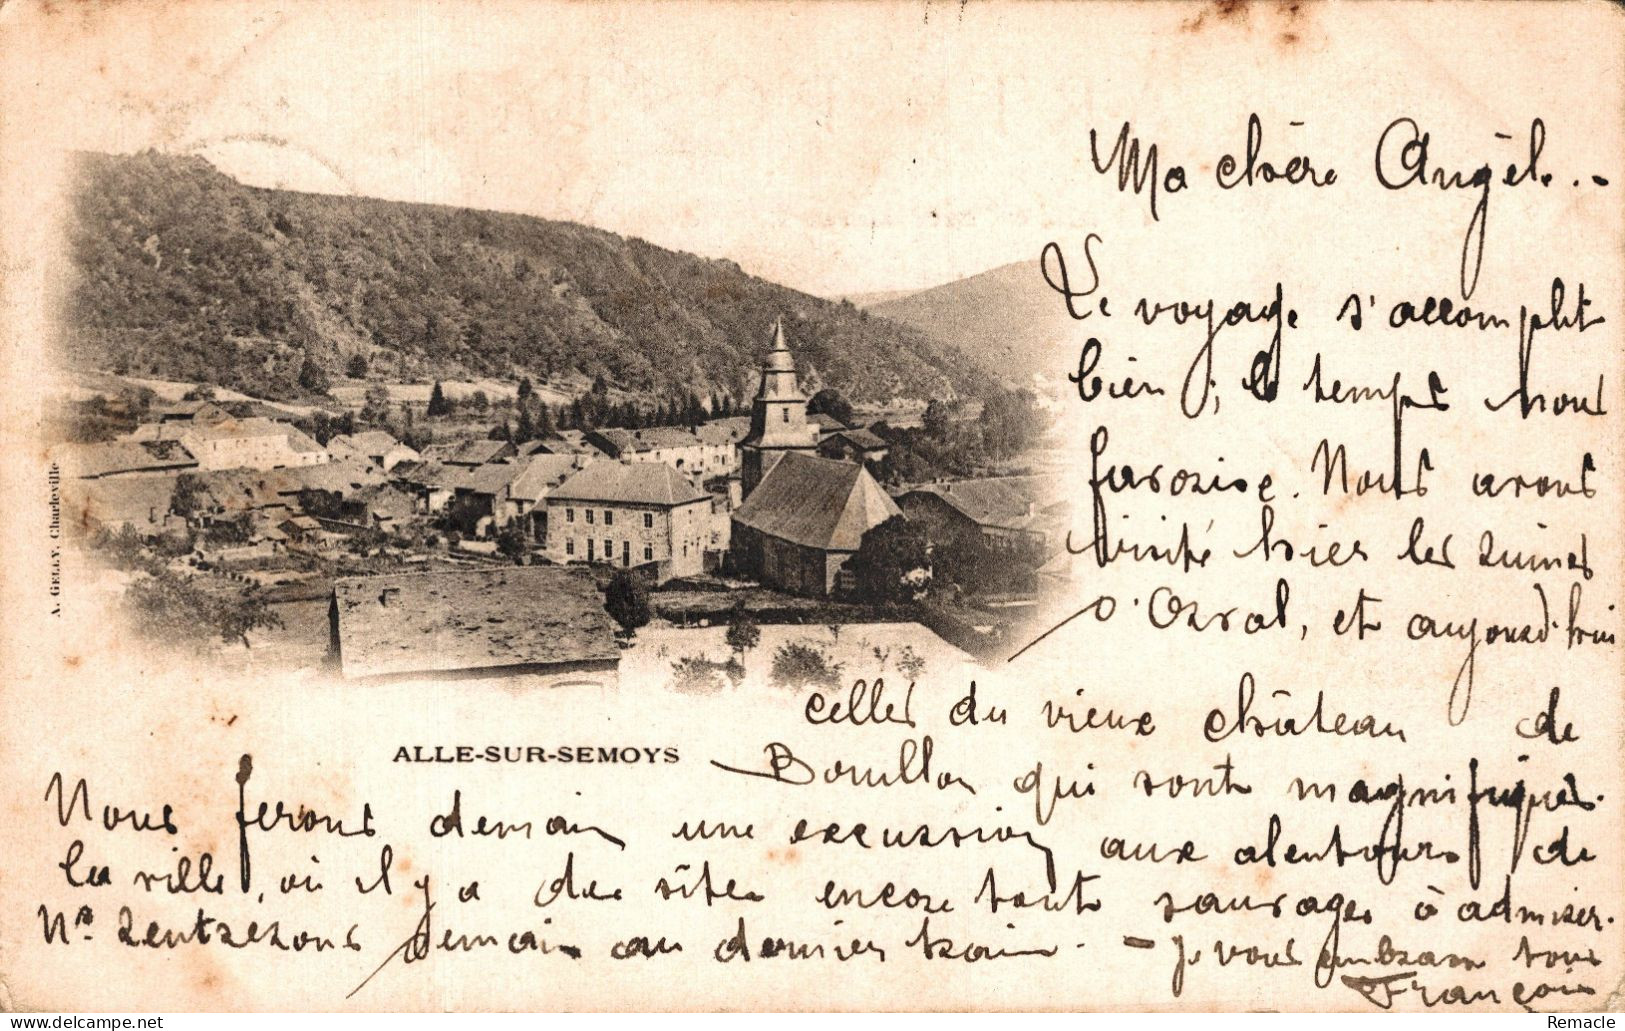 Ma chère Angèle.-
Le voyage s'accomplit
bien ; le temps nous
favorise. Nous avons
visité hier les ruines
d'Orval, et aujourd'hui
celles du vieux château de
Bouillon qui sont magnifiques.
ALLE-SUR-SEMOYS
Nous ferons demain une excursion aux alentours de
la ville, où il y a des sites encore tout sauvages à admirer.
Ns. rentrerons demain au dernier train. - Je vous embrasse tous
François
A. GELLY, Charleville
delcampe.net
Remacle